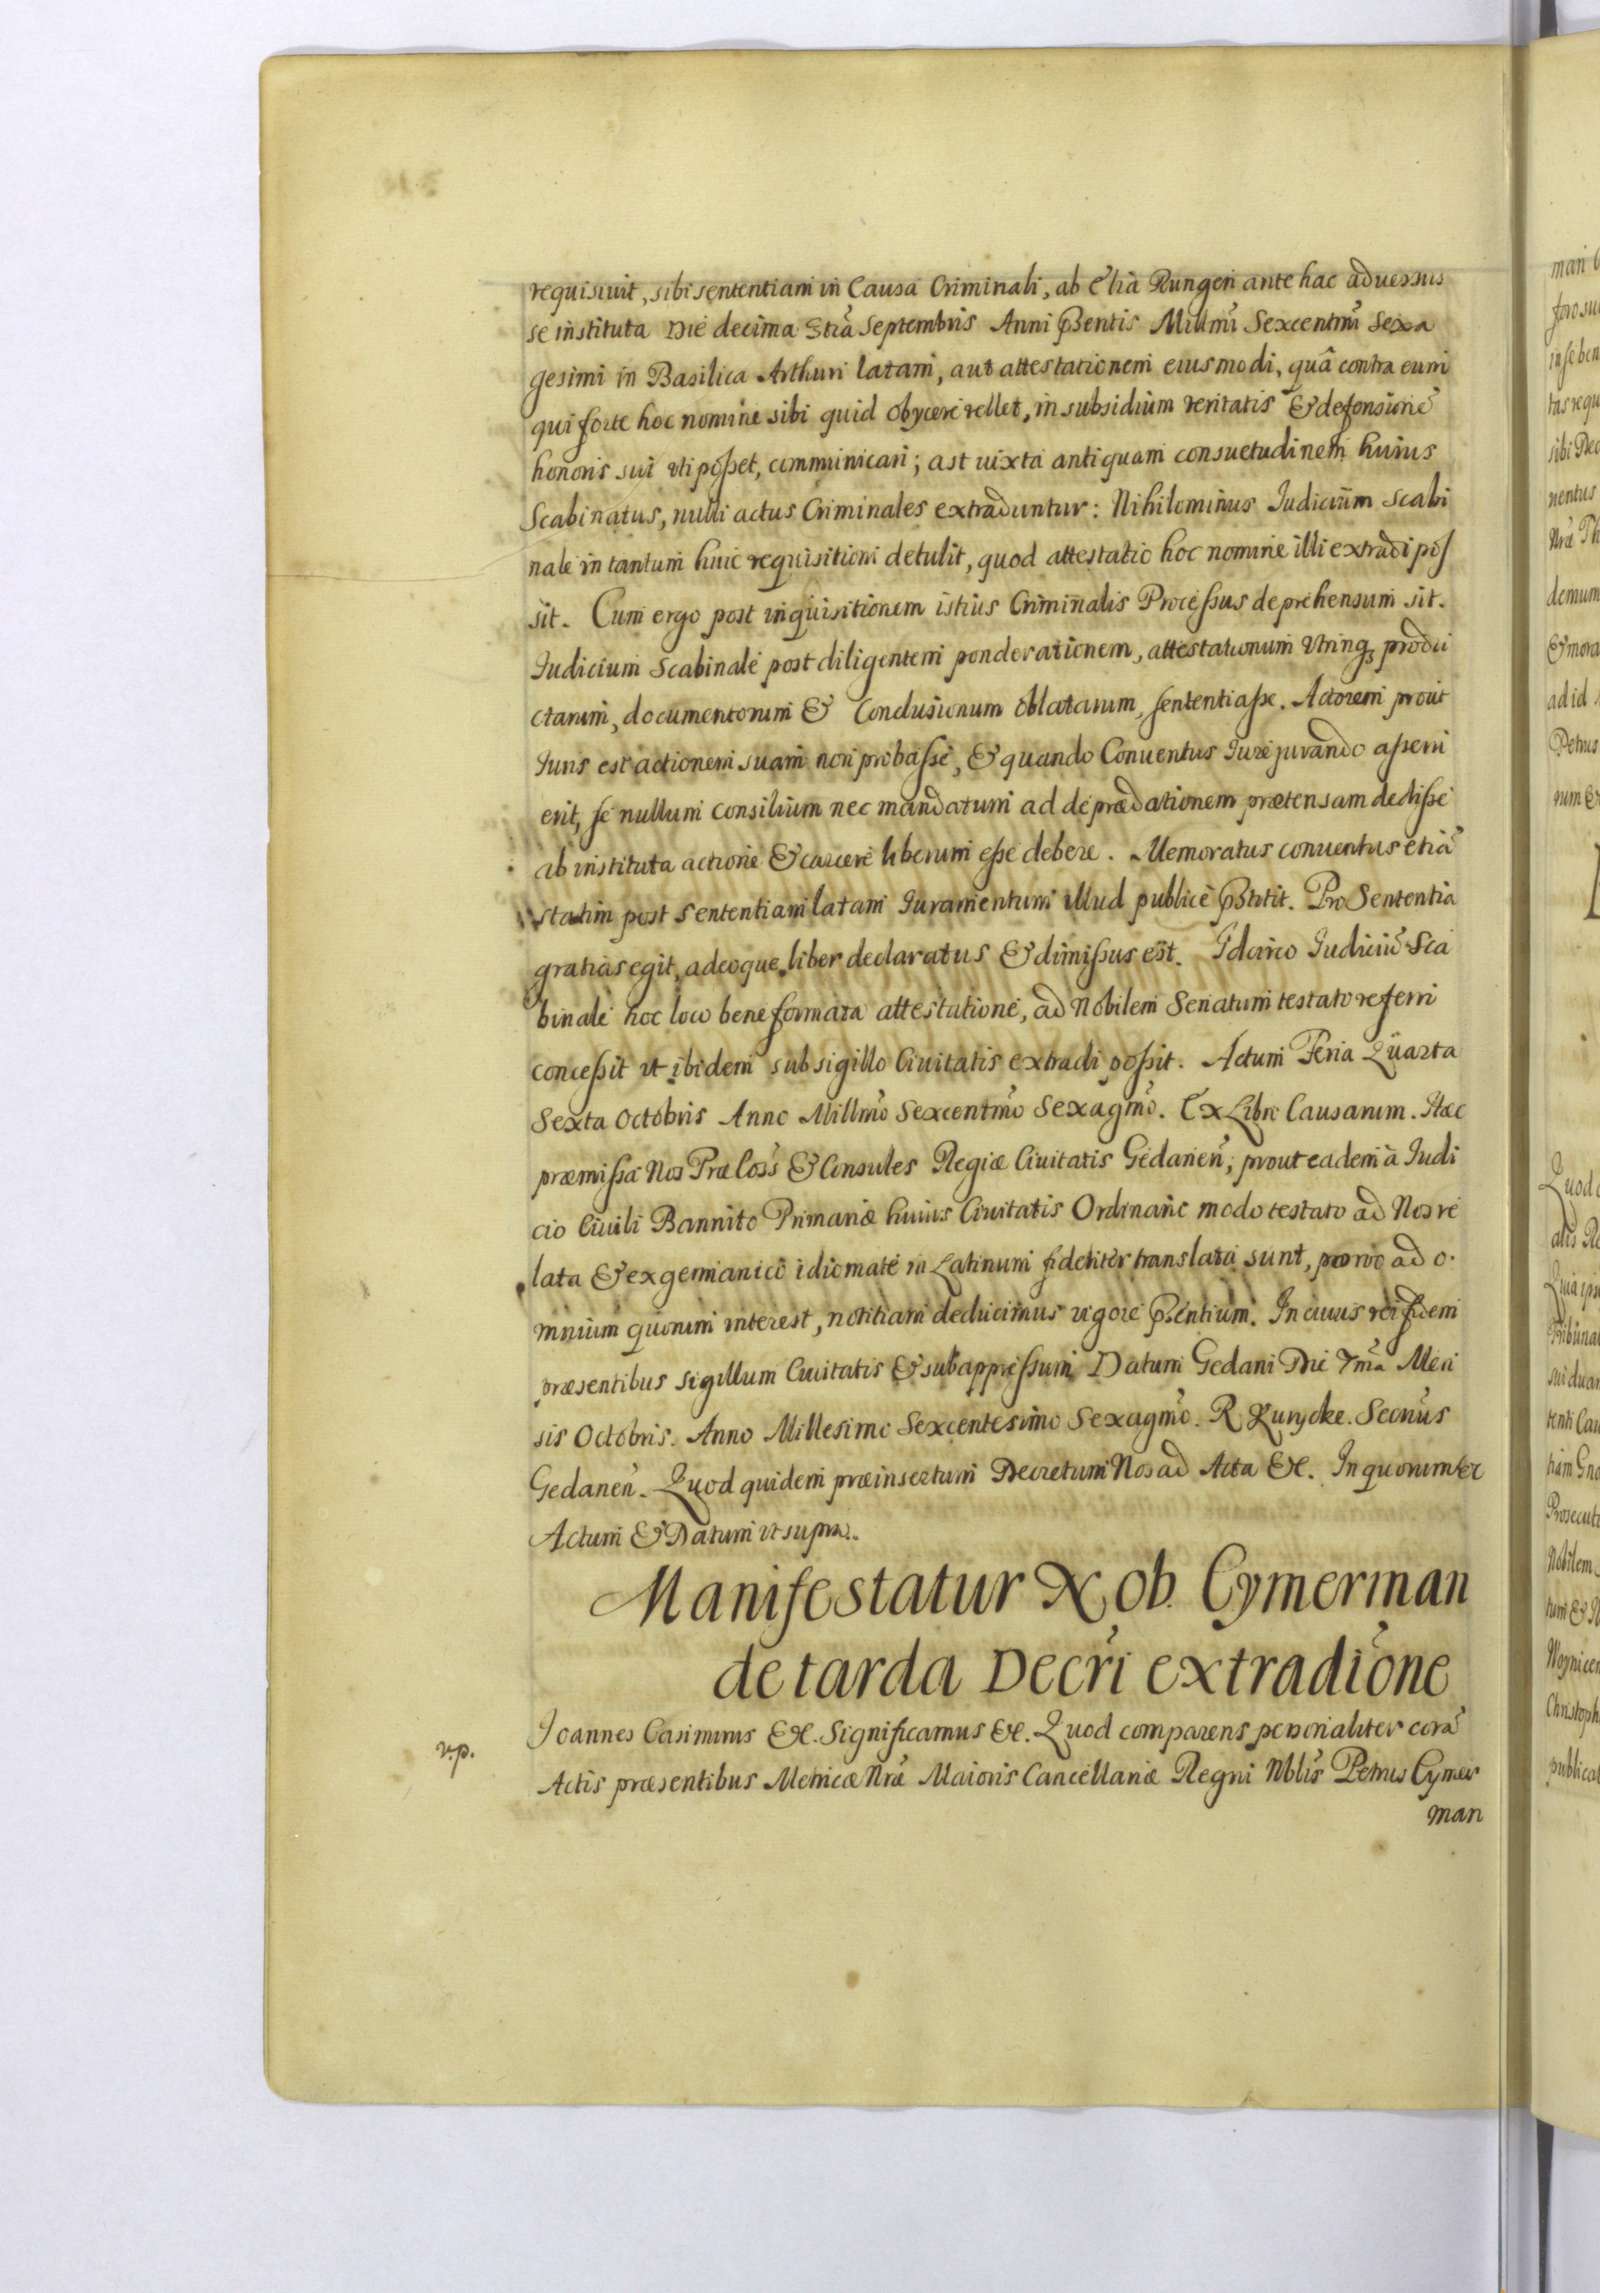 requisiuit, sibi sententiam in Causa Criminali, ab Elia Rungen ante hac aduersus
se instituta Die decima 3tia Septembris Anni Pñtis Millmi Sexcentmi Sexa
gesimi in Basilica Arthuri latam, aut attestationem eiusmodi, quâ contra eum
qui forte hoc nomine sibi quid obycere vellet, in subsidium veritatis & defonsionẽ
honoris sui vti posset, communicari; ast iuxta antiquam consuetudinem huius
Scabinatus, nulli actus Criminales extraduntur: Nihilominus Iudicium Scabi
nale in tantum huic requisitioni detulit, quod attestatio hoc nomine illi extradi pos
sit. Cum ergo post inquisitionem istius Criminalis Processus deprehensum sit.
Iudicium Scabinale post diligentem ponderationem, attestationum vtrinq3 produ
ctarum, documentorum & Conclusionum oblatarum, sententiasse. Actorem prout
Iuris est actionem suam non probasse, & quando Conuentus Iure jurando asseru
erit, se nullum consilium nec mandatum ad depraedationem praetensam dedisse
ab instituta actione & carcere liberum esse debere. Memoratus conuentus etiã
statim post sententiam latam Iuramentum illud publicè Pstitit. Pro Sententia
gratias egit, adeoque liber declaratus & dimissus est. Idcirco Iudiciũ Sca
binale hoc loco bene formata attestatione, ad Nobilem Senatum testato referri
concessit vt ibidem sub sigillo Ciuitatis extradi possit. Actum Feria Quarta
Sexta Octobris Anno Millmo Sexcentmo Sexagmo. Ex Libro Causarum. Haec
praemissa Nos Praecoss & Consules Regiae Ciuitatis Gedanen, prout eadem à Iudi
cio Ciuili Bannito Primariae huius Ciuitatis Ordinario modo testato ad Nos re
lata & ex germanico idiomate in Latinum fideliter translata sunt, porro ad o.
mnium quorum interest, notitiam deducimus vigore Pñtium. In cuius rei fidem
praesentibus sigillum Ciuitatis & subappressum Datum Gedani Die 7ma Men
sis Octobris. Anno Millesimo Sexcentesimo Sexagmo. R Kurycke. Secrius
Gedanen. Quod quidem praeinsertum Decretum Nos ad Acta &c. In quorum &c
Actum & Datum vt supra.
Manifestatur Nob. Cymerman
de tarda Decri extraditione
Joannes Casimirus &c. Significamus &c. Quod comparens personaliter corã
v.p.
Actis praesentibus Metricae Nrae Maioris Cancellariae Regni Nblis Petrus Cymer
man